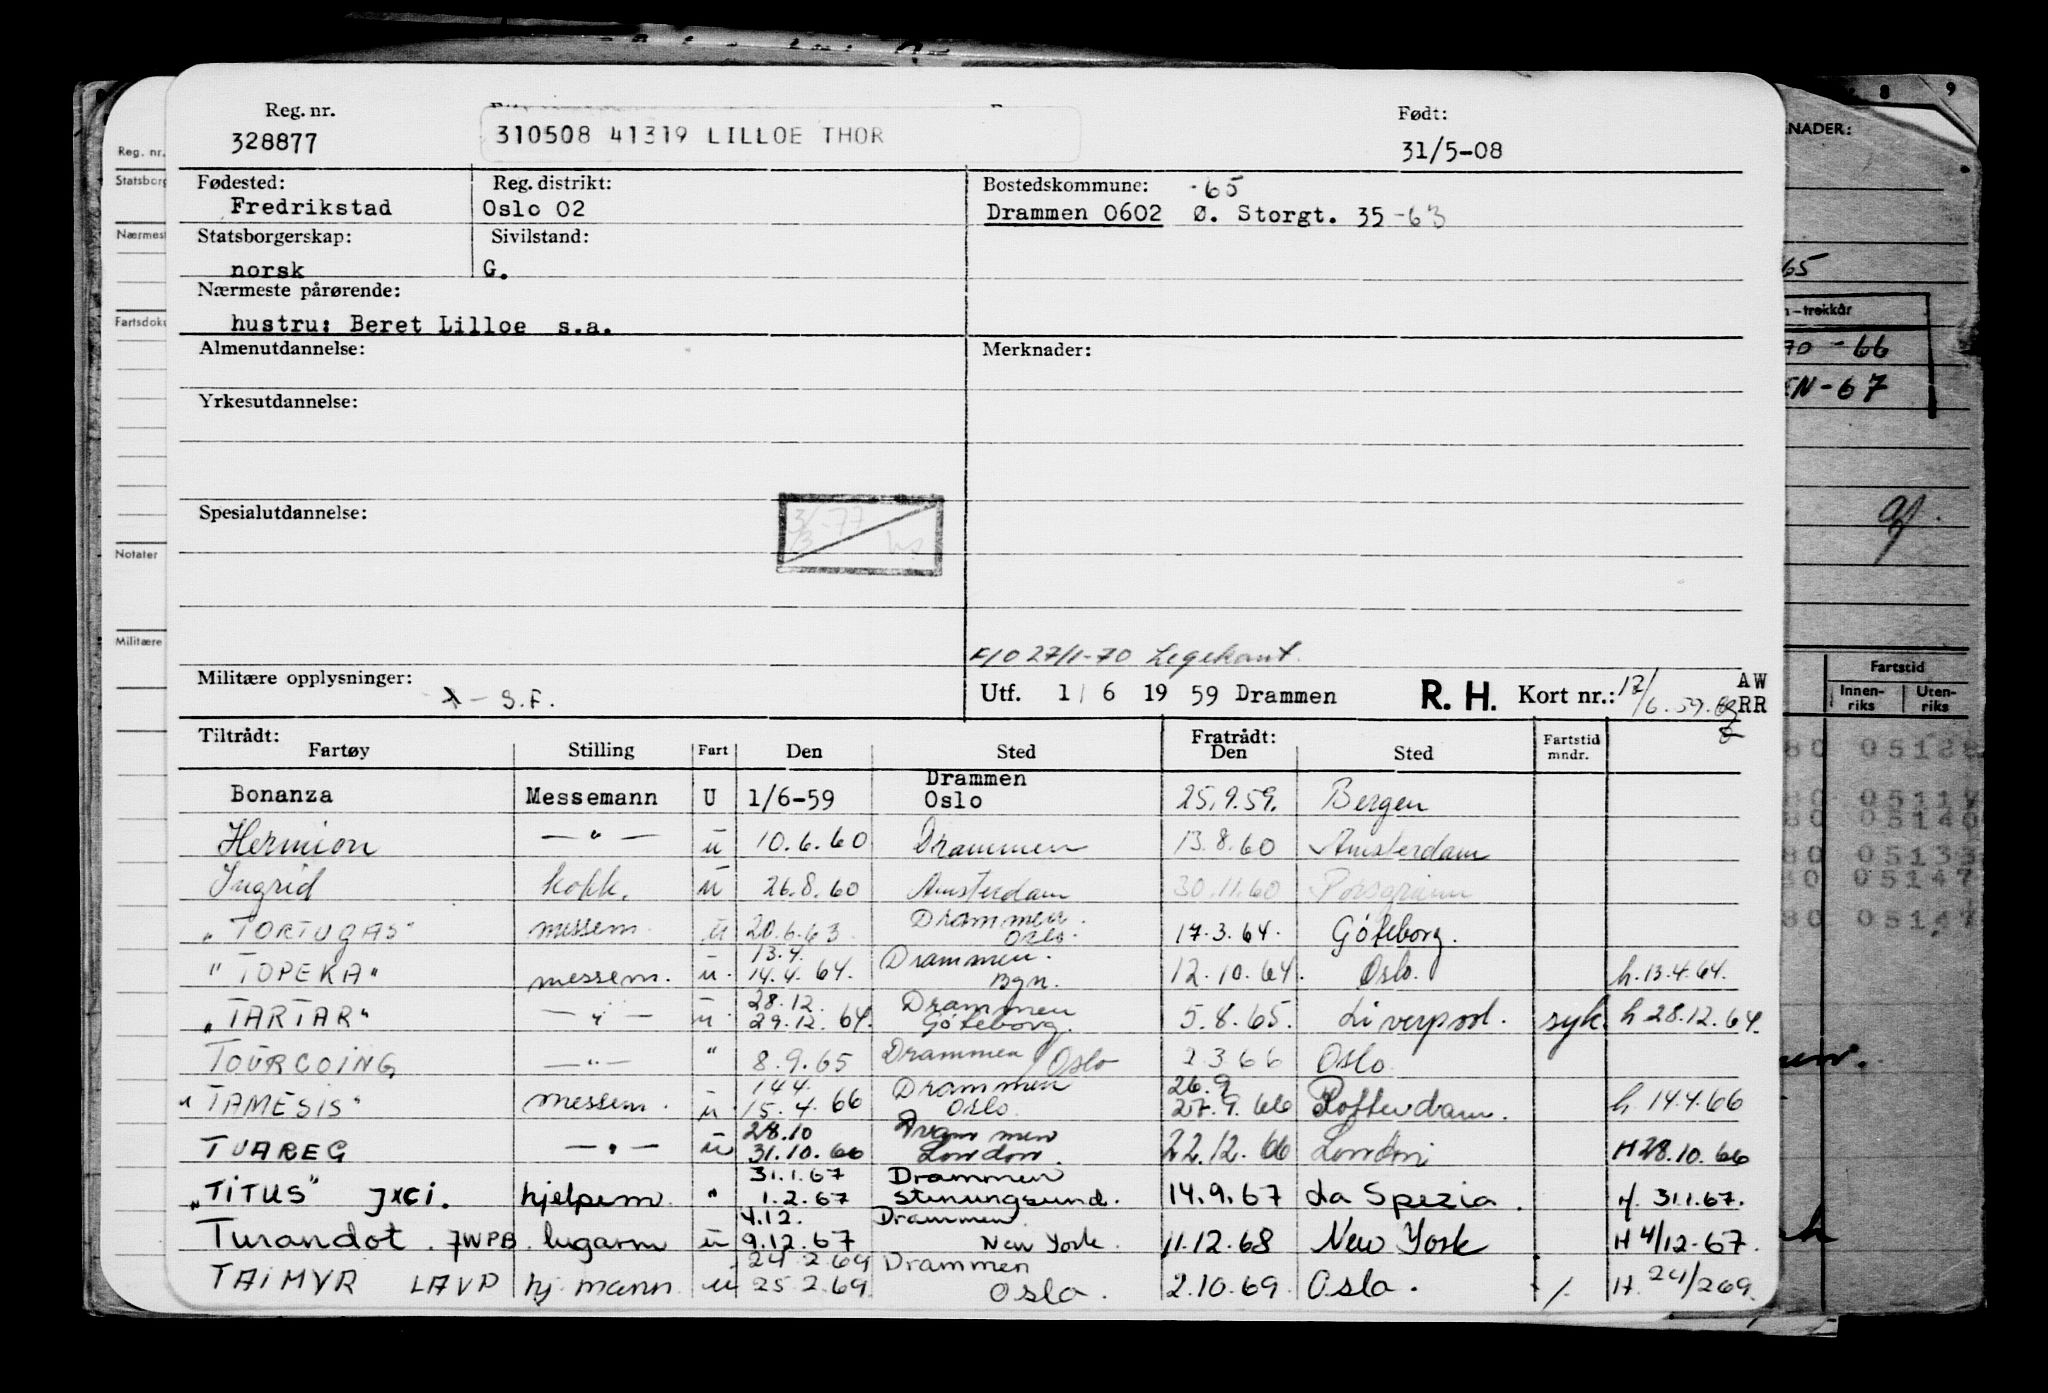 Reg. nr. Født:
328877 310508 41319 LILLOE THOR 31/5-08
Fødested: Reg. distrikt: Bostedskommune: -65
Fredrikstad Oslo 02 Drammen 0602 Ø. Storgt. 35 -63
Statsborgerskap: Sivilstand:
norsk G.
Nærmeste pårørende:
hustru: Beret Lilloe s.a.
Almenutdannelse: Merknader:
Yrkesutdannelse:
Spesialutdannelse:
3/3-77
27/1-70 Legekont.
Militære opplysninger: Utf. 1/6 1959 Drammen R. H. Kort nr.: AW
S.F. RR
Tiltrådt: Fratrådt:
Fartøy Stilling Fart Den Sted Den Sted Fartstid mndr.
Drammen
Bonanza Messemann U 1/6-59 Oslo 25.9.59. Bergen
Hermion — " — u 10.6.60 Drammen 13.8.60 Amsterdam
Ingrid kokk. u 26.8.60 Amsterdam 30.11.60 Porsgrunn
Drammen.
"TORTUGAS" messem. u 20.6.63 Oslo. 17.3.64. Göteborg.
13.4. Drammen.
"TOPEKA" messem. u. 14.4.64. Bgn. 12.10.64. Oslo. h.13.4.64.
28.12. Drammen
"TARTAR" — " — u. 29.12.64. Göteborg. 5.8.65. Liverpool. syk. h 28.12.64.
TOURCOING — " — " 8.9.65 Drammen / Oslo 2.3.66 Oslo
14.4. Drammen 26.9
"TAMESIS" messem. u 15.4.66 Oslo. 27.9.66 Rotterdam. h 14.4.66
28.10 Drammen
TUAREG — " — u 31.10.66 London. 22.12.66 London H 28.10.66
31.1.67 Drammen
"TITUS" JXCI. hjelpem. " 1.2.67 Stenungsund. 14.9.67 La Spezia. H. 31.1.67.
4.12. Drammen.
Turandot. JWPB. lugarm u 9.12.67 New York. 11.12.68 New York H 4/12-67.
24.2.69 Drammen
TAIMYR LAVP hj. mann. u 25.2.69 Oslo. 2.10.69. Oslo. / H. 24/2 69.
Reg. nr.
Statsborg
Nærmest
Fartsdoku
Notater
Militære
8 9
NADER:
65
-trekkår
70 - 66
EN-67
Fartstid
Innen-riks Uten-riks
80 05128
80 05140
80 05133
80 05147